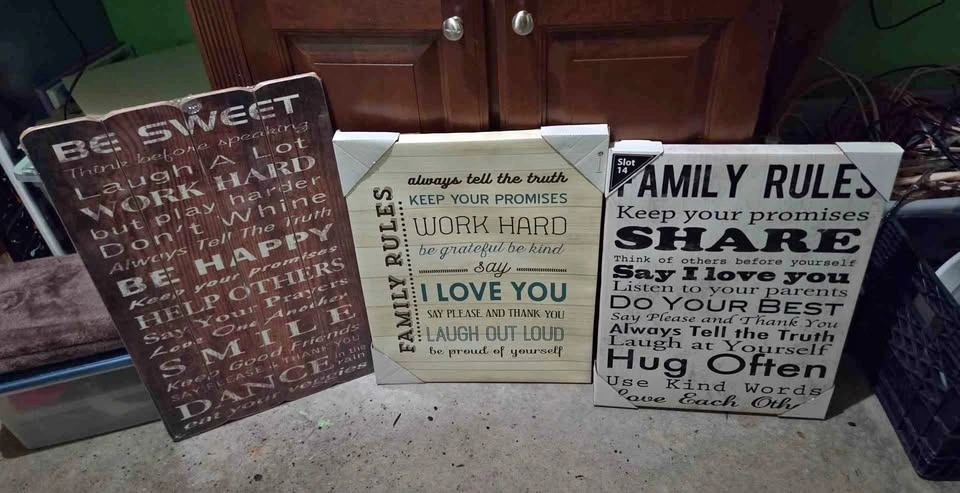 BE SWEET
Think before speaking
Laugh A Lot
WORK HARD
but play harder
Don't Whine
Always Tell The Truth
BE HAPPY
Keep your promises
HELP OTHERS
Say Your Prayers
Love One Another
SMILE
Keep Good Friends
SAY THANK YOU
DANCE in the rain
eat your veggies
FAMILY RULES
always tell the truth
KEEP YOUR PROMISES
WORK HARD
be grateful be kind
say
I LOVE YOU
SAY PLEASE AND THANK YOU
LAUGH OUT LOUD
be proud of yourself
Slot
14
FAMILY RULES
Keep your promises
SHARE
Think of others before yourself
Say I love you
Listen to your parents
DO YOUR BEST
Say Please and Thank You
Always Tell the Truth
Laugh at Yourself
Hug Often
Use Kind Words
Love Each Oth